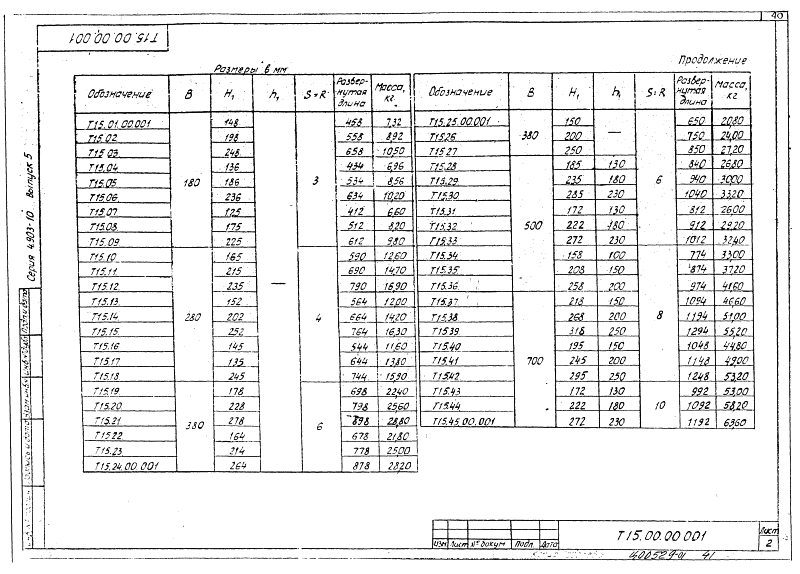 40
Т15.00.00.001
Размеры в мм
Продолжение
Обозначение B H₁ h₁ S=R Развернутая длина Масса, кг
Т15.01.00.001 180 148 — 3 458 7,32
Т15.02 198 558 8,92
Т15.03 248 658 10,50
Т15.04 136 434 6,96
Т15.05 186 534 8,56
Т15.06 236 634 10,20
Т15.07 125 412 6,60
Т15.08 175 512 8,20
Т15.09 225 612 9,80
Т15.10 280 165 4 590 12,60
Т15.11 215 690 14,70
Т15.12 235 790 16,90
Т15.13 152 564 12,00
Т15.14 202 664 14,20
Т15.15 252 764 16,30
Т15.16 145 544 11,60
Т15.17 135 644 13,80
Т15.18 245 744 15,90
Т15.19 380 178 6 698 22,40
Т15.20 228 798 25,60
Т15.21 278 898 28,80
Т15.22 164 678 21,80
Т15.23 214 778 25,00
Т15.24.00.001 264 878 28,20
Обозначение B H₁ h₁ S=R Развернутая длина Масса, кг
Т15.25.00.001 380 150 — 6 650 20,80
Т15.26 200 750 24,00
Т15.27 250 850 27,20
Т15.28 500 185 130 840 26,80
Т15.29 235 180 940 30,00
Т15.30 285 230 1040 33,20
Т15.31 172 130 812 26,00
Т15.32 222 180 912 29,20
Т15.33 272 230 1012 32,40
Т15.34 158 100 8 774 33,00
Т15.35 208 150 874 37,20
Т15.36 258 200 974 41,60
Т15.37 700 218 150 1094 46,60
Т15.38 268 200 1194 51,00
Т15.39 318 250 1294 55,20
Т15.40 195 150 1048 44,80
Т15.41 245 200 1148 49,00
Т15.42 295 250 1248 53,20
Т15.43 172 130 10 992 53,00
Т15.44 222 180 1092 58,20
Т15.45.00.001 272 230 1192 63,60
Серия 4.903-10 Выпуск 5
Т15.00.00.001
Лист
2
Изм Лист № докум Подп. Дата
400529-01 41